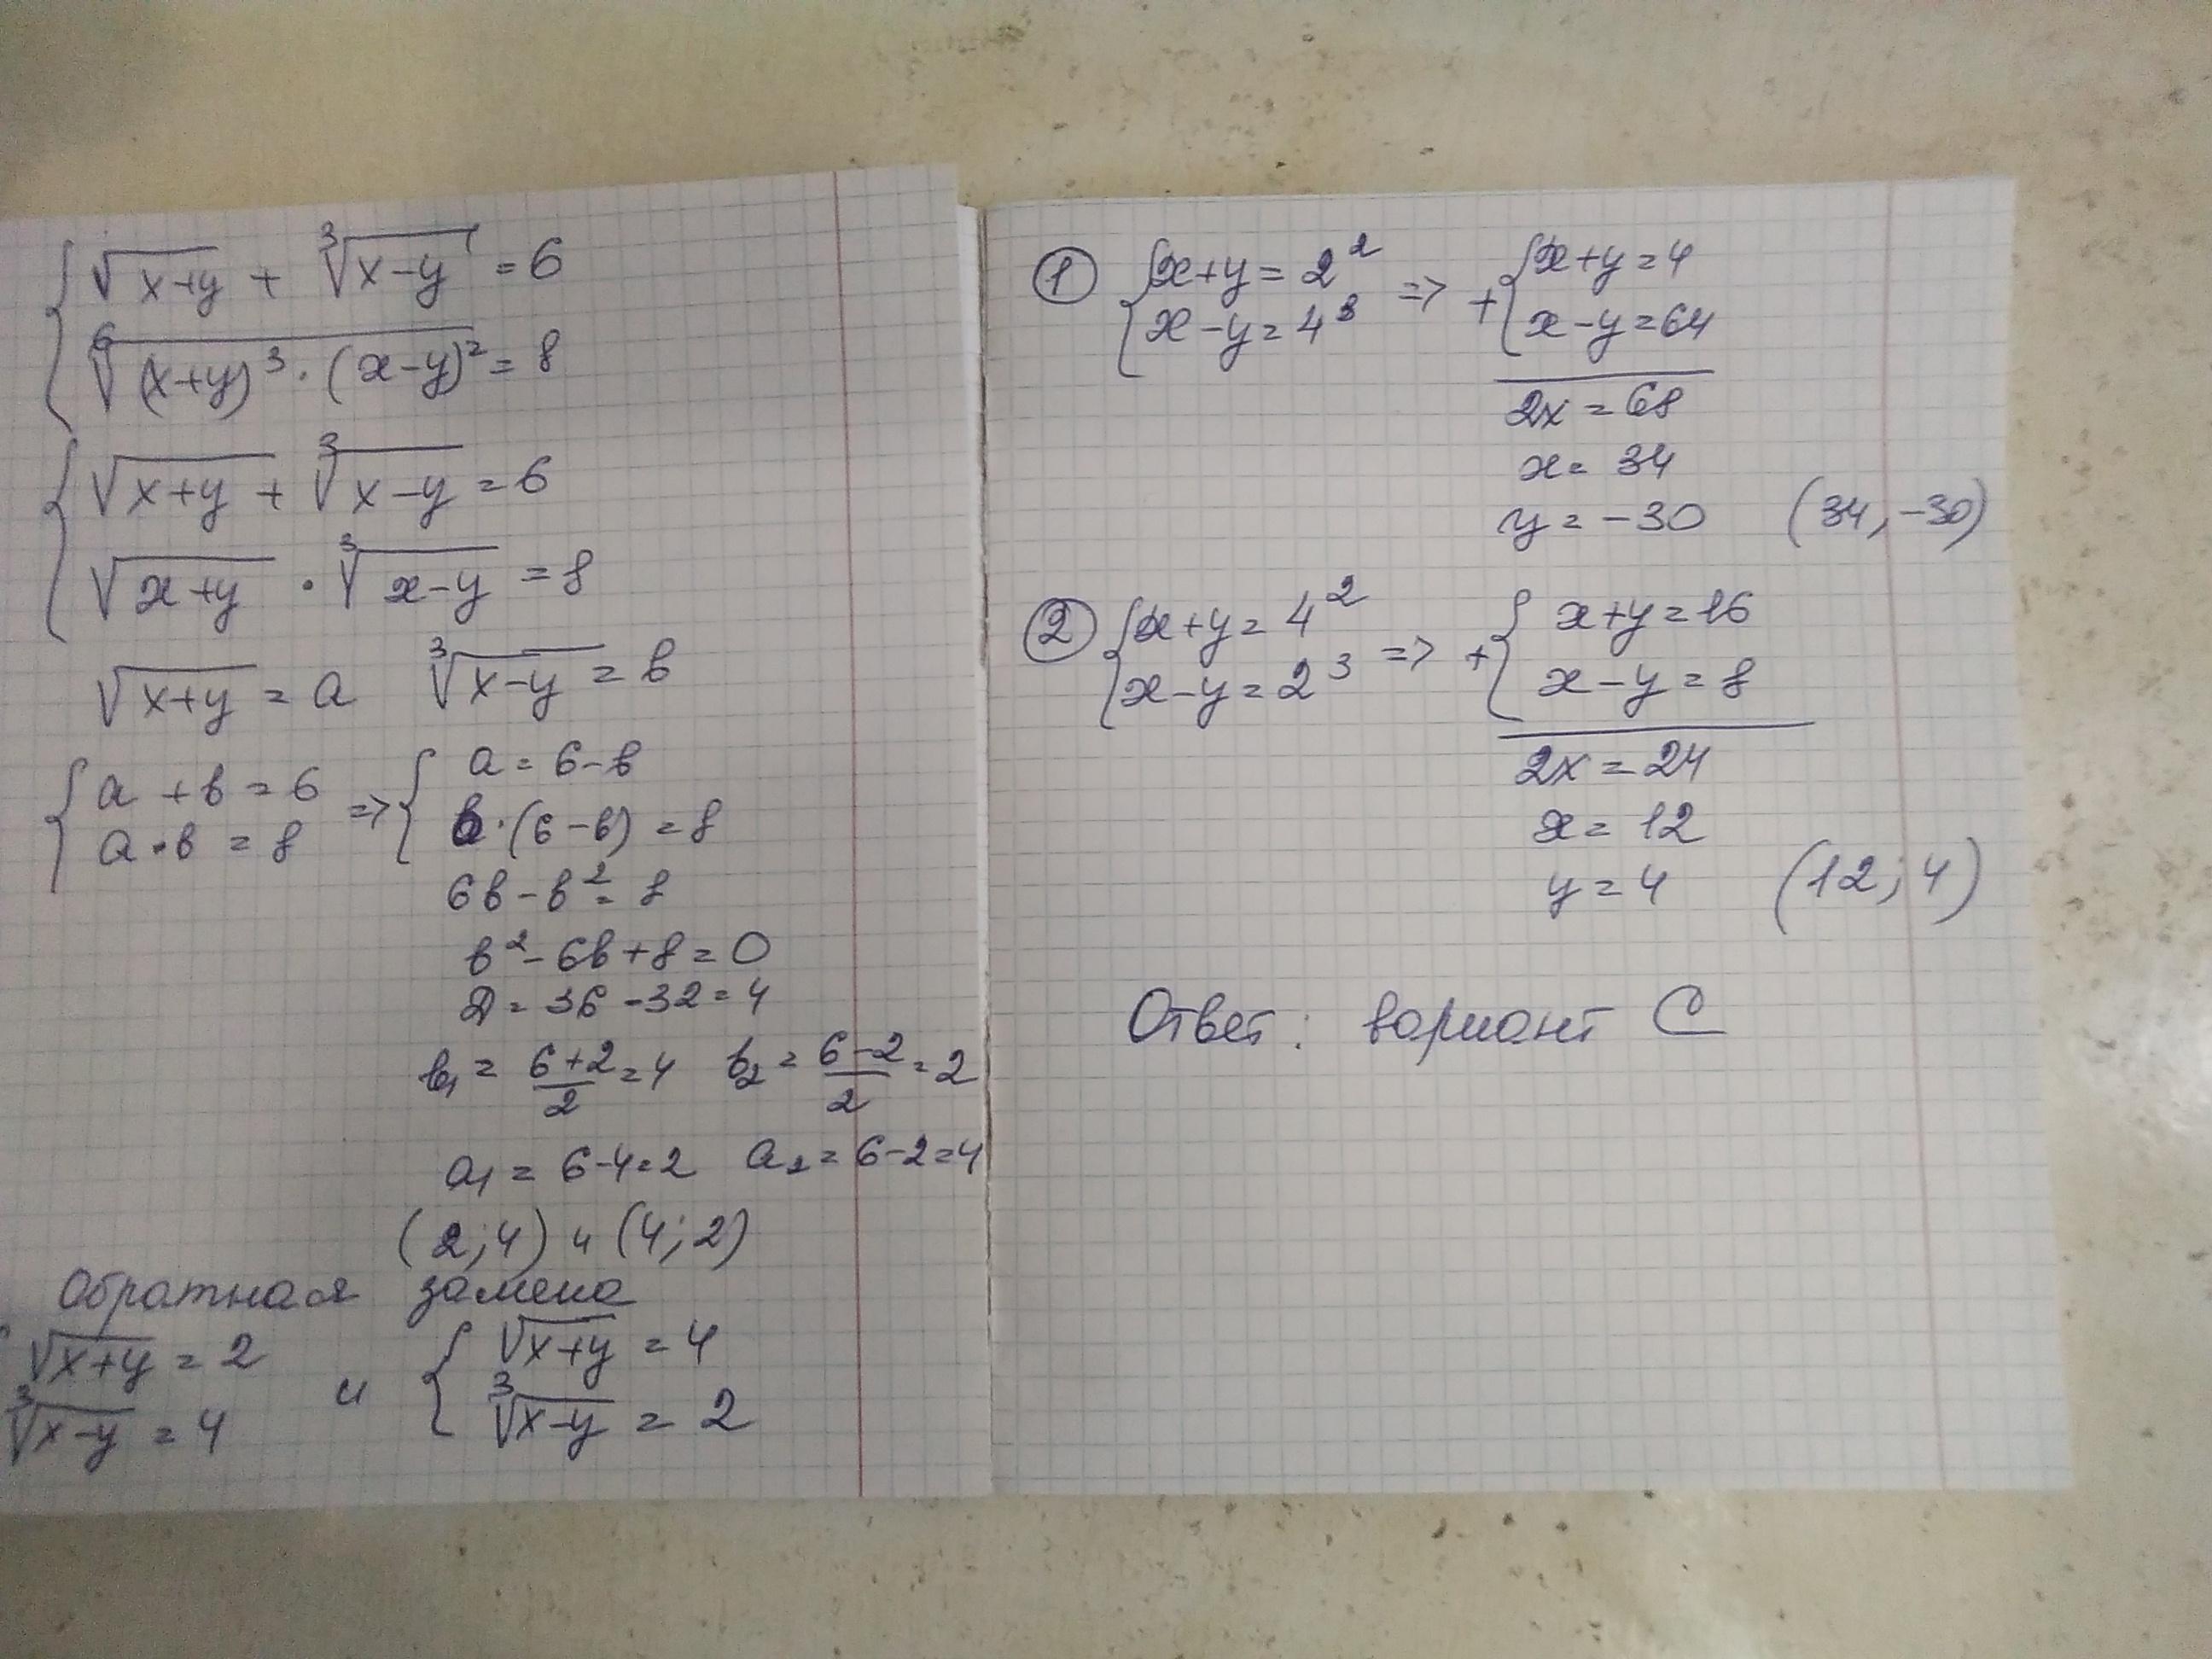 { √(x+y) + ∛(x−y) = 6
⁶√((x+y)³ · (x−y)²) = 8
{ √(x+y) + ∛(x−y) = 6
√(x+y) · ∛(x−y) = 8
√(x+y) = a   ∛(x−y) = в
{ a + в = 6 => { a = 6−в
a·в = 8   в·(6−в) = 8
6в − в² = 8
в² − 6в + 8 = 0
D = 36 − 32 = 4
в₁ = (6+2)/2 = 4   в₂ = (6−2)/2 = 2
a₁ = 6−4=2   a₂ = 6−2=4
(2;4) и (4;2)
Обратная замена
√(x+y) = 2   и   { √(x+y) = 4
∛(x−y) = 4   ∛(x−y) = 2
① { x+y = 2² => + { x+y = 4
x−y = 4³   x−y = 64
2x = 68
x = 34
y = −30   (34, −30)
② { x+y = 4² => + { x+y = 16
x−y = 2³   x−y = 8
2x = 24
x = 12
y = 4   (12; 4)
Ответ: вариант С